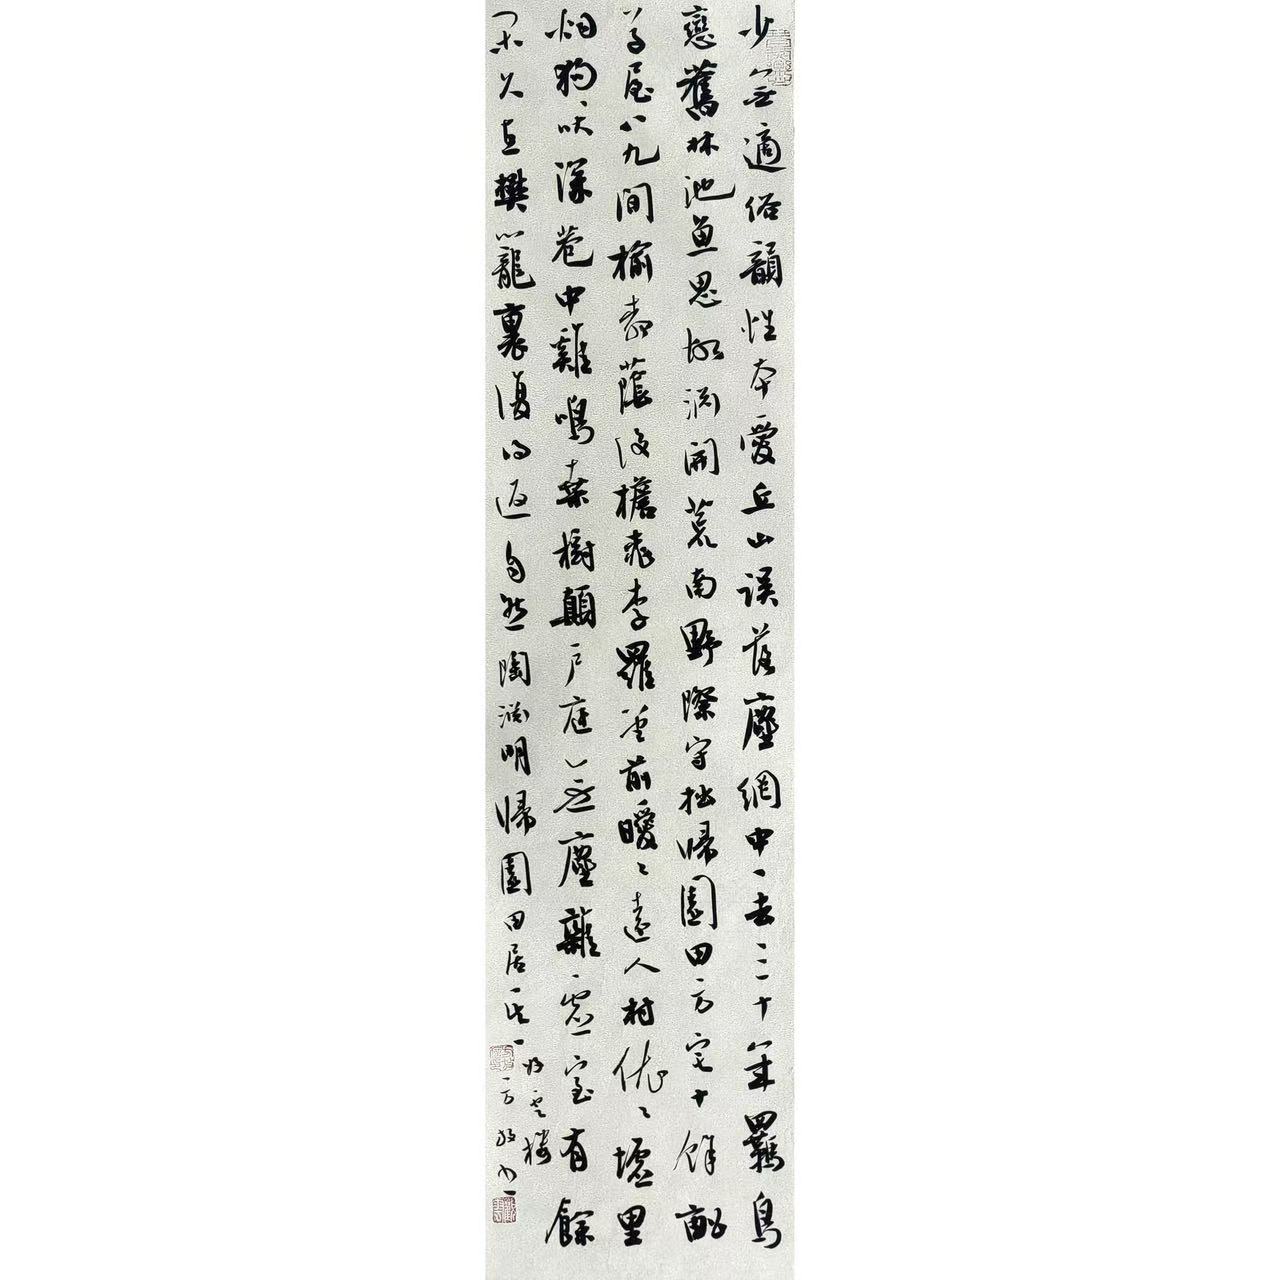 少無適俗韻性本愛丘山誤落塵網中一去三十年羈鳥
戀舊林池魚思故淵開荒南野際守拙歸園田方宅十餘畝
草屋八九間榆柳蔭後檐桃李羅堂前曖〻遠人村依〻墟里
烟狗吠深巷中雞鳴桑樹顛戶庭無塵雜虛室有餘
閑久在樊籠裏復得返自然陶淵明歸園田居其一